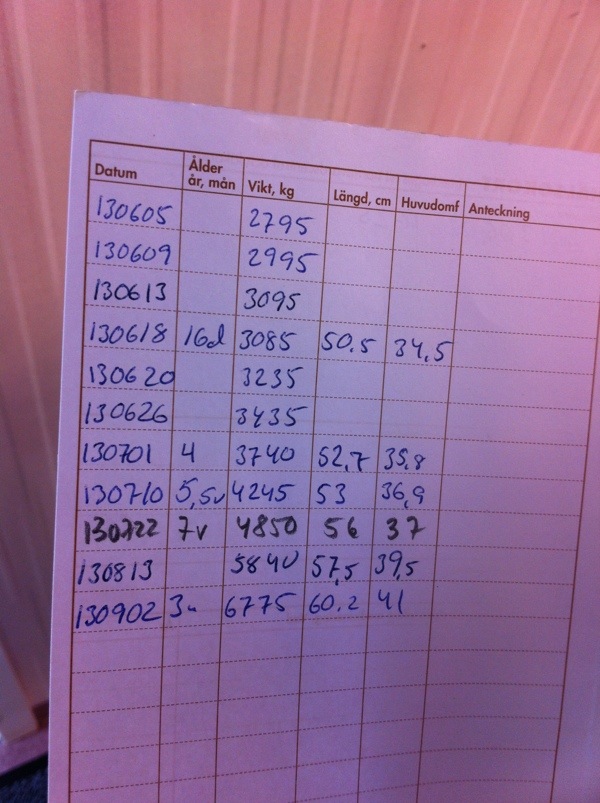 Datum Ålder år, mån Vikt, kg Längd, cm Huvudomf Anteckning
130605 2795
130609 2995
130613 3095
130618 16d 3085 50.5 34,5
130620 3235
130626 3435
130701 4 3740 52,7 35,8
130710 5,5v 4245 53 36,9
130722 7v 4850 56 37
130813 5840 57,5 39,5
130902 6775 60.2 41